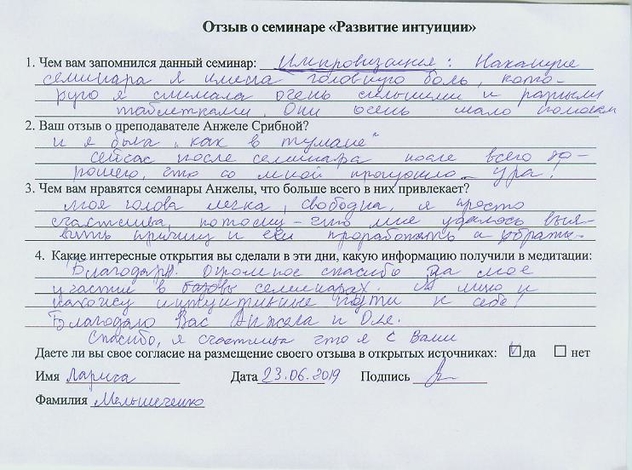 Отзыв о семинаре «Развитие интуиции»
1. Чем вам запомнился данный семинар: Импровизация: Накануне
семинара я имела головную боль, кото-
рую я снимала очень сильными и разными
таблетками. Они очень мало помогали
2. Ваш отзыв о преподавателе Анжеле Срибной?
и я была „как в тумане"
сейчас после семинара после всего хо-
рошего, что со мной произошло - ура!
3. Чем вам нравятся семинары Анжелы, что больше всего в них привлекает?
моя голова легка, свободна, я просто
счастлива, потому-что мне удалось выя-
вить причину и её проработать и убрать.
4. Какие интересные открытия вы сделали в эти дни, какую информацию получили в медитации:
Благодарю. Огромное спасибо за мое
участие в семинарах. Я ищу и
нахожу интуитивные пути к себе!
Благодарю Вас Анжела и Оле.
Спасибо, я счастлива что я с Вами
Даете ли вы свое согласие на размещение своего отзыва в открытых источниках: да нет
Имя Лариса Дата 23.06.2019 Подпись
Фамилия Мельниченко